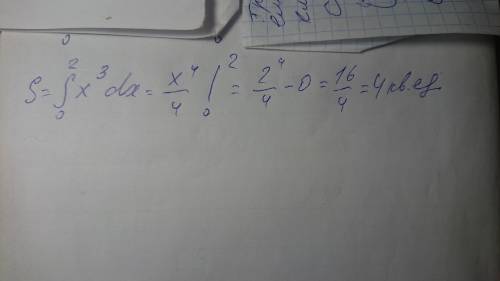 S = ∫₀² x³ dx = x⁴/4 |₀² = 2⁴/4 − 0 = 16/4 = 4 кв.ед